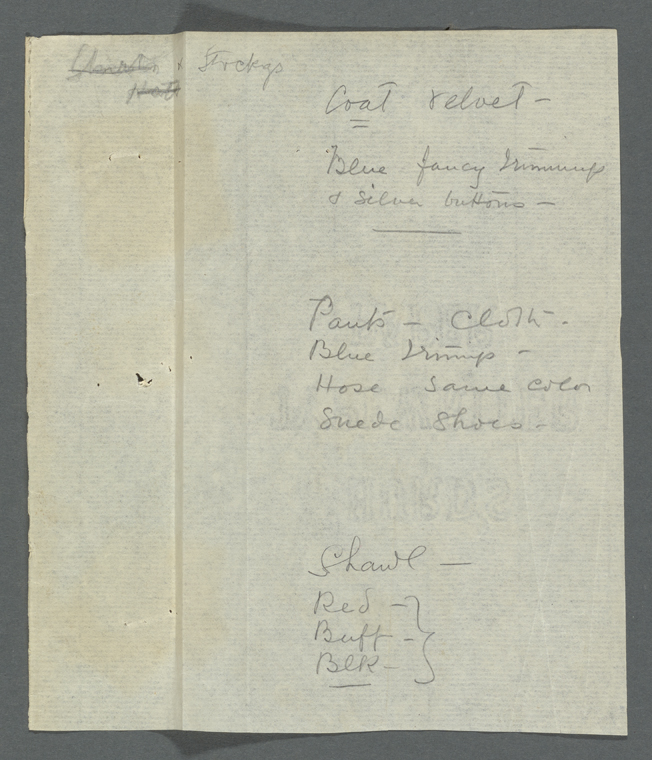 & Stockgs
Coat velvet —
Blue fancy trimmings
& silver buttons —
Pants — cloth.
Blue trimgs —
Hose same color
Suede shoes —
Shawl —
Red —
Buff —
Blk —